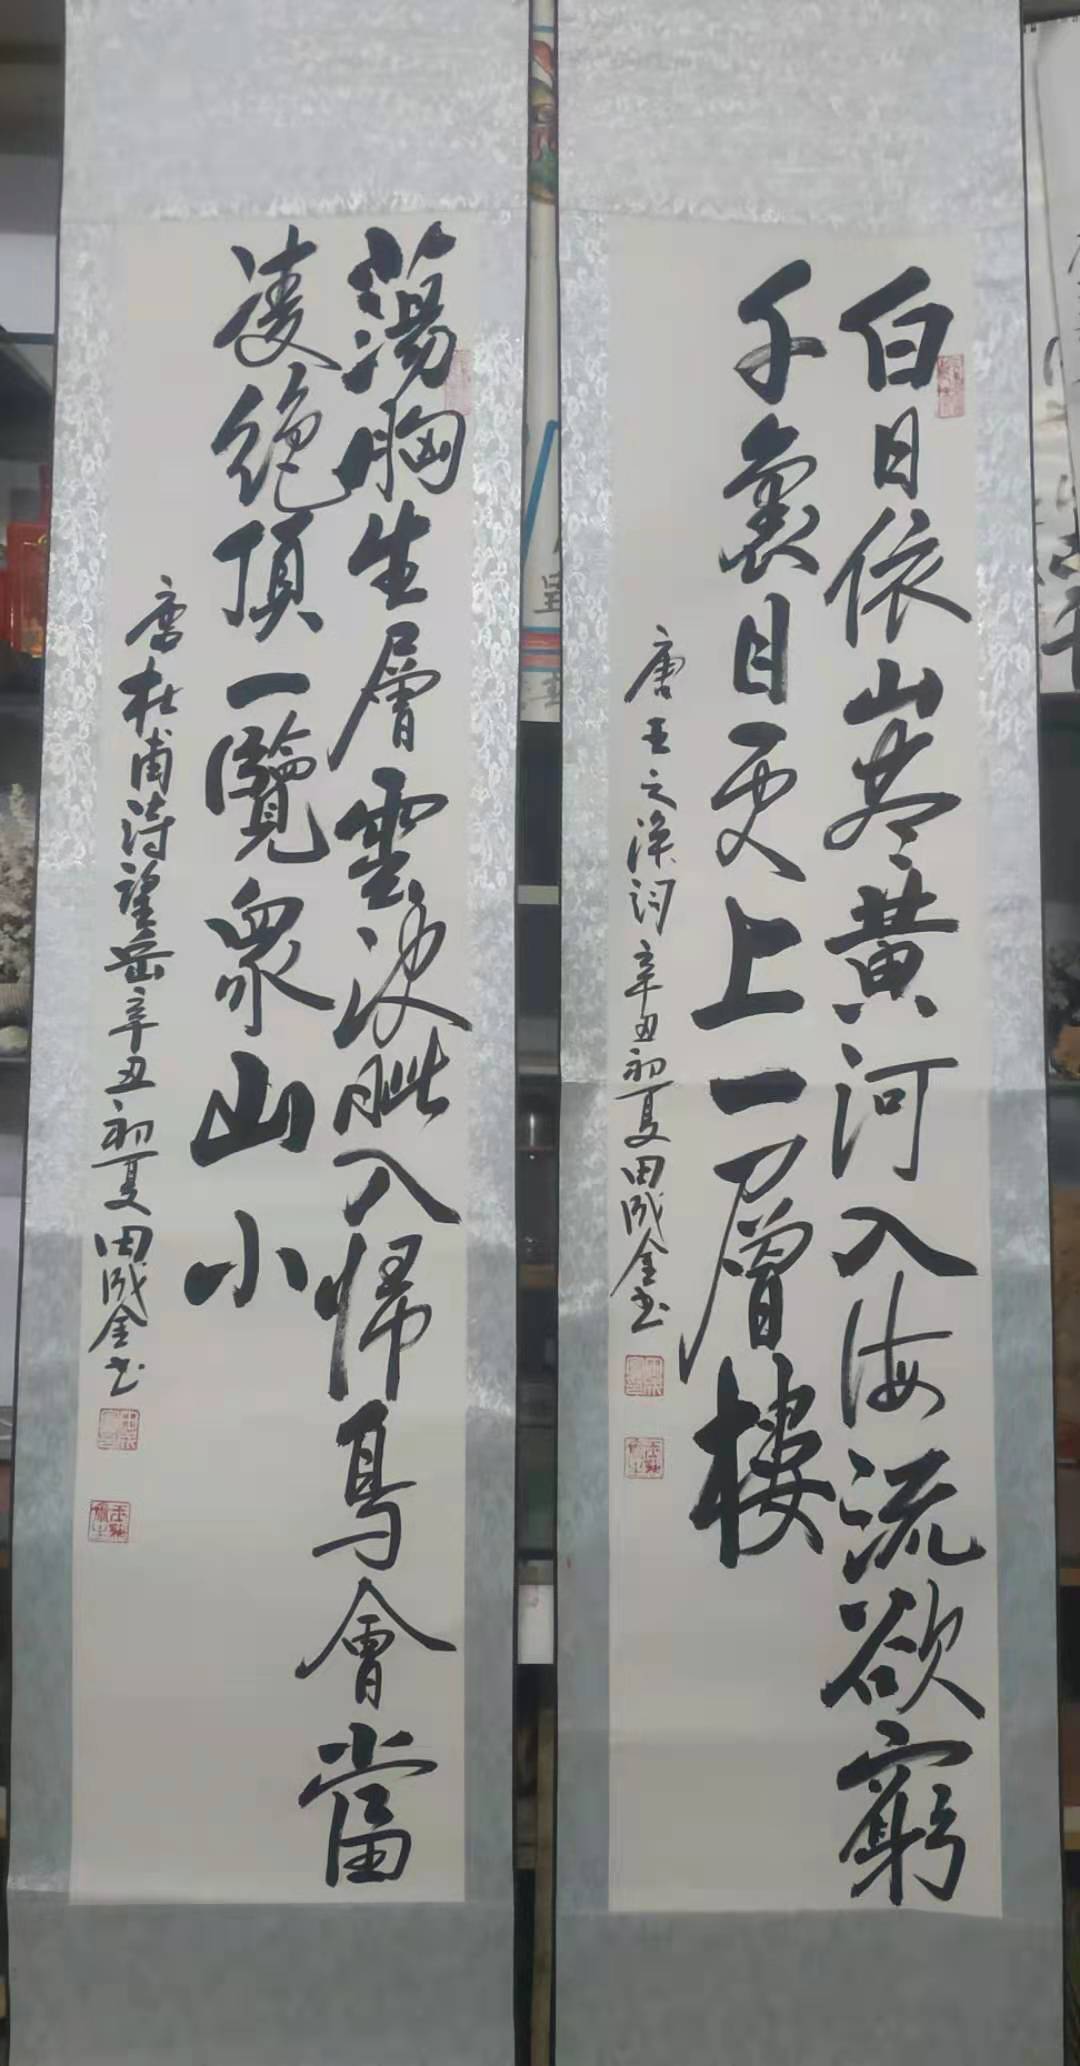 白日依山尽黄河入海流欲窮
千裏目更上一層樓
唐王之涣词辛丑初夏田成金书
蕩胸生層雲決眦入帰鳥會當
凌絶頂一覽衆山小
唐杜甫诗望岳辛丑初夏田成金书